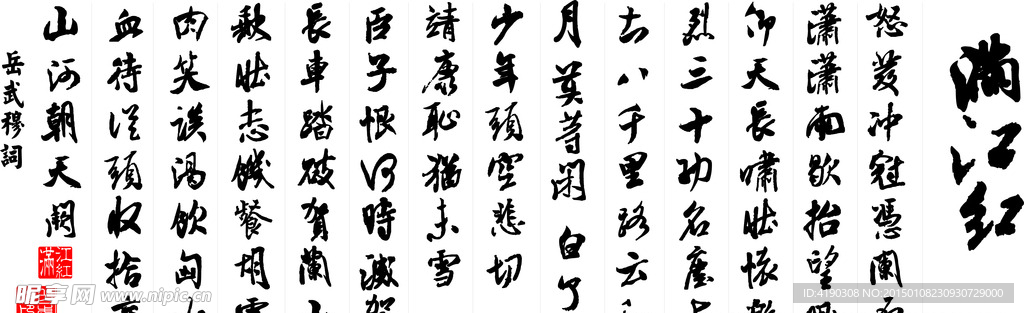 滿江紅
怒發冲冠憑闌
瀟瀟雨歇抬望
仰天長嘯壯懷
烈三十功名塵
土八千里路云
月莫等閑白了
少年頭空悲切
靖康恥猶未雪
臣子恨何時滅
長車踏破賀蘭
缺壯志饑餐胡
肉笑談渴飲匈
血待從頭收拾
山河朝天闕
岳武穆詞
滿江紅
昵享网 www.nipic.cn
ID:4190308 NO:20150108230930729000